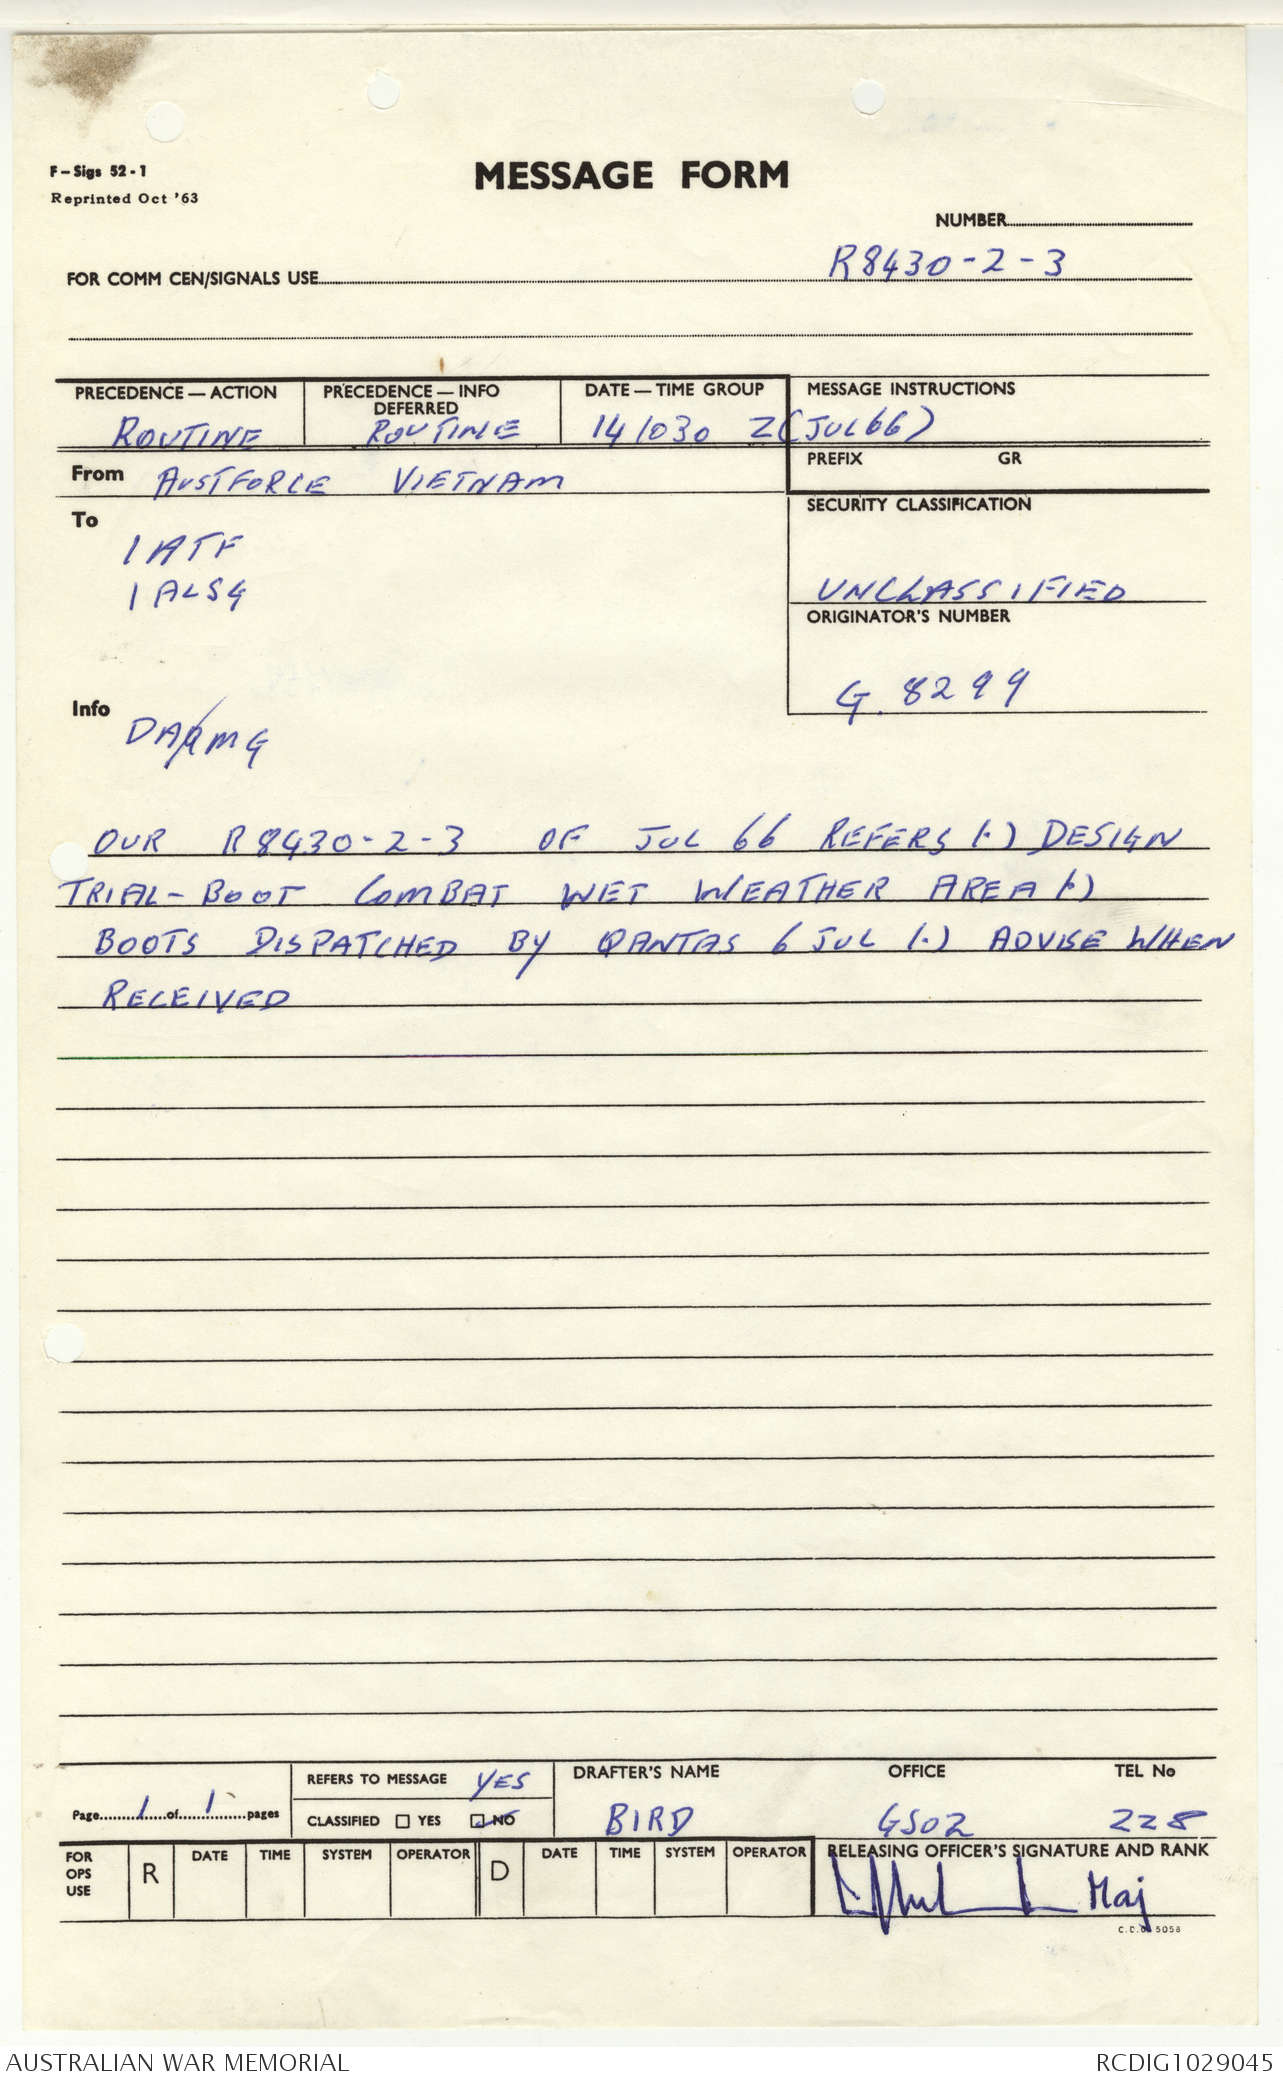 F-Sigs 52-1
Reprinted Oct '63
MESSAGE FORM
NUMBER
FOR COMM CEN/SIGNALS USE R8430-2-3
PRECEDENCE — ACTION
ROUTINE
PRECEDENCE — INFO
DEFERRED
ROUTINE
DATE — TIME GROUP
141030 Z (JUL 66)
MESSAGE INSTRUCTIONS
PREFIX GR
From AUSTFORCE VIETNAM
To
1 ATF
1 ALSG
SECURITY CLASSIFICATION
UNCLASSIFIED
ORIGINATOR'S NUMBER
G. 8299
Info
OUR R8430-2-3 OF JUL 66 REFERS (.) DESIGN
TRIAL-BOOT COMBAT WET WEATHER AREA (.)
BOOTS DISPATCHED BY QANTAS 6 JUL (.) ADVISE WHEN
RECEIVED
Page 1 of 1 pages
REFERS TO MESSAGE YES
CLASSIFIED YES NO
DRAFTER'S NAME
BIRD
OFFICE
GSO2
TEL No
228
FOR
OPS
USE
R DATE TIME SYSTEM OPERATOR D DATE TIME SYSTEM OPERATOR
RELEASING OFFICER'S SIGNATURE AND RANK
Maj
AUSTRALIAN WAR MEMORIAL RCDIG1029045